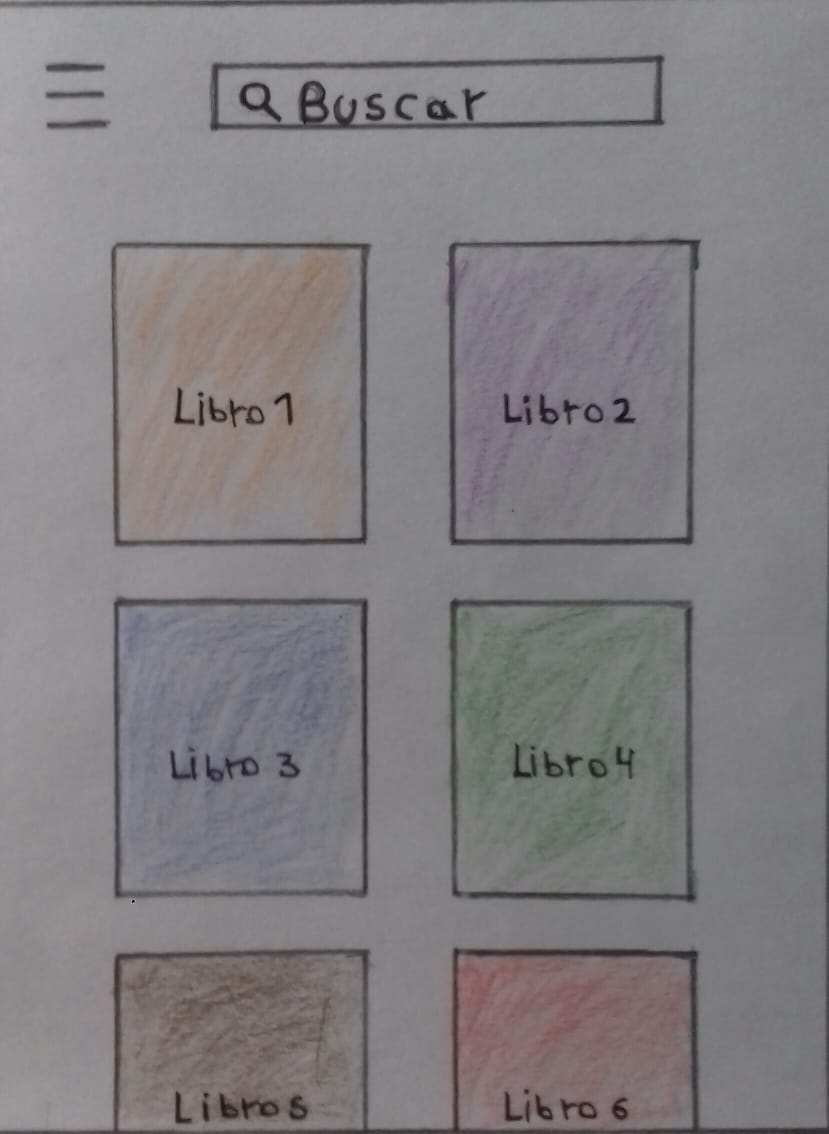 Buscar
Libro 1
Libro 2
Libro 3
Libro 4
Libro 5
Libro 6